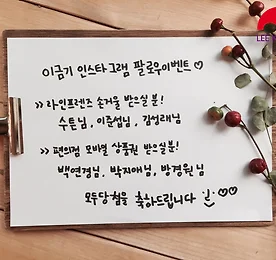 이금기 인스타그램 팔로우이벤트 ♡
>> 라인프렌즈 손거울 받으실 분!
수튼님, 이준섭님, 김성래님
>> 편의점 모바일 상품권 받으실분!
백연경님, 박지애님, 방경원님
모두당첨을 축하드립니다 :) ♡♡
LEE